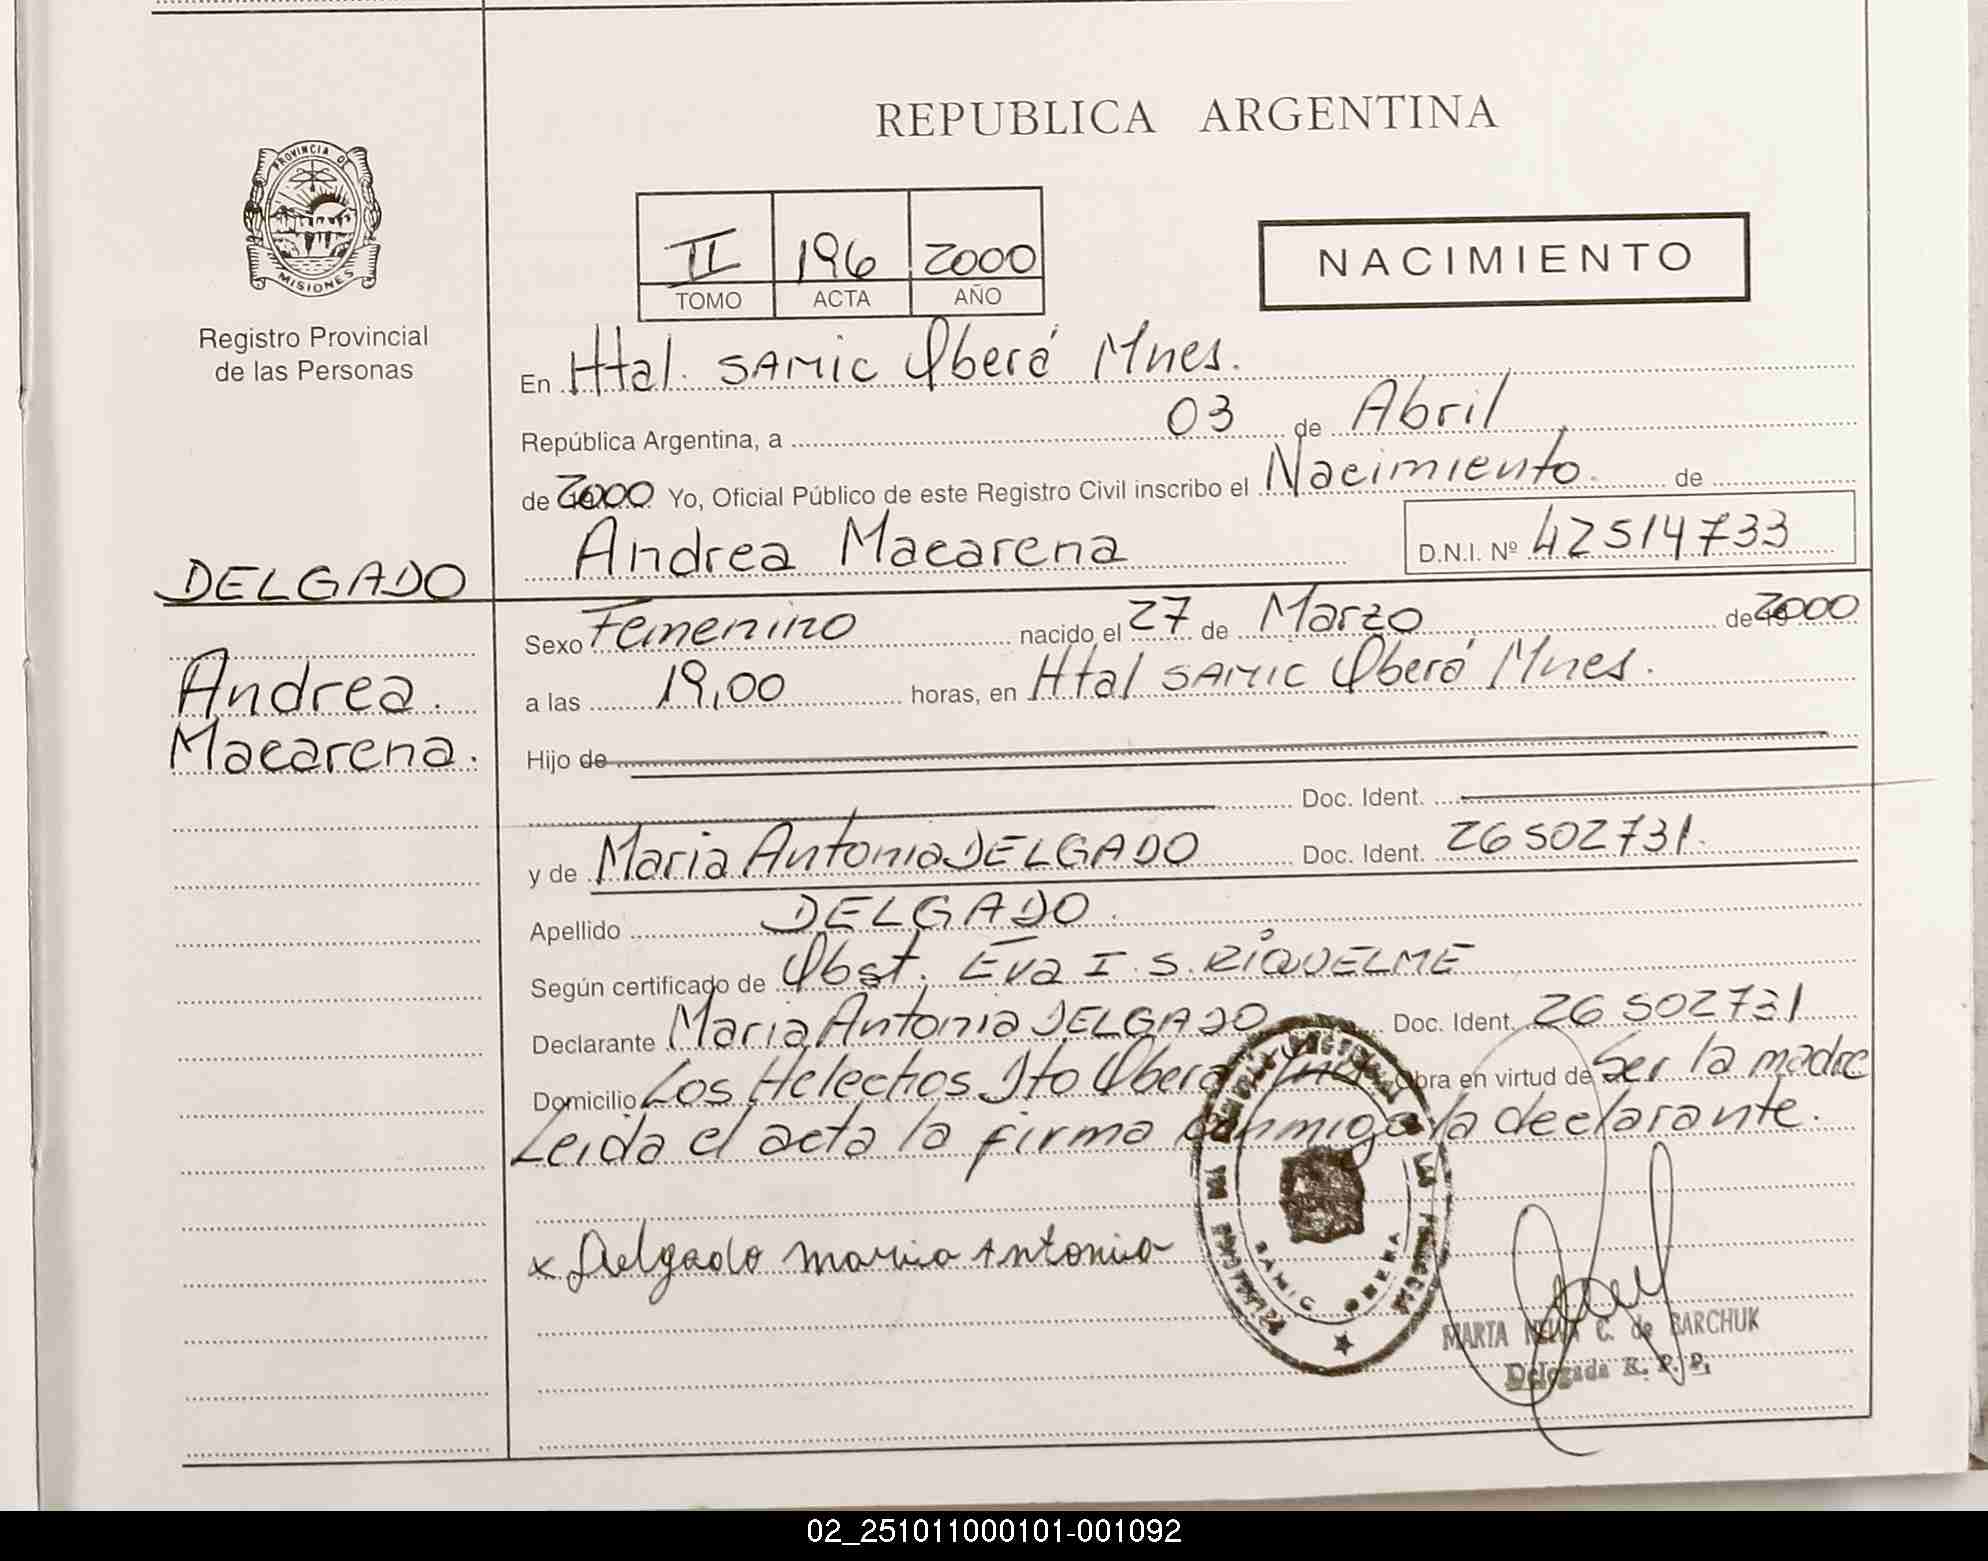 REPUBLICA ARGENTINA
PROVINCIA DE
MISIONES
Registro Provincial
de las Personas
II 196 2000
TOMO ACTA AÑO
NACIMIENTO
En Htal. SAMIC Oberá Mnes.
República Argentina, a 03 de Abril
de 2000 Yo, Oficial Público de este Registro Civil inscribo el Nacimiento. de
Andrea Macarena D.N.I. Nº 42514733
DELGADO
Andrea.
Macarena.
Sexo Femenino nacido el 27 de Marzo de 2000
a las 19,00 horas, en Htal SAMIC Oberá Mnes.
Hijo de
Doc. Ident.
y de Maria Antonia DELGADO Doc. Ident. 26502731.
Apellido DELGADO.
Según certificado de Obst. Eva I. S. RIQUELME
Declarante Maria Antonia DELGADO Doc. Ident. 26502731
Domicilio Los Helechos Dto Oberá Obra en virtud de Ser la madre
Leida el acta la firma conmigo la declarante.
x Delgado maria Antonia
SAMIC OBERA
MARTA C. de BARCHUK
Delegada R. P. P.
02_251011000101-001092